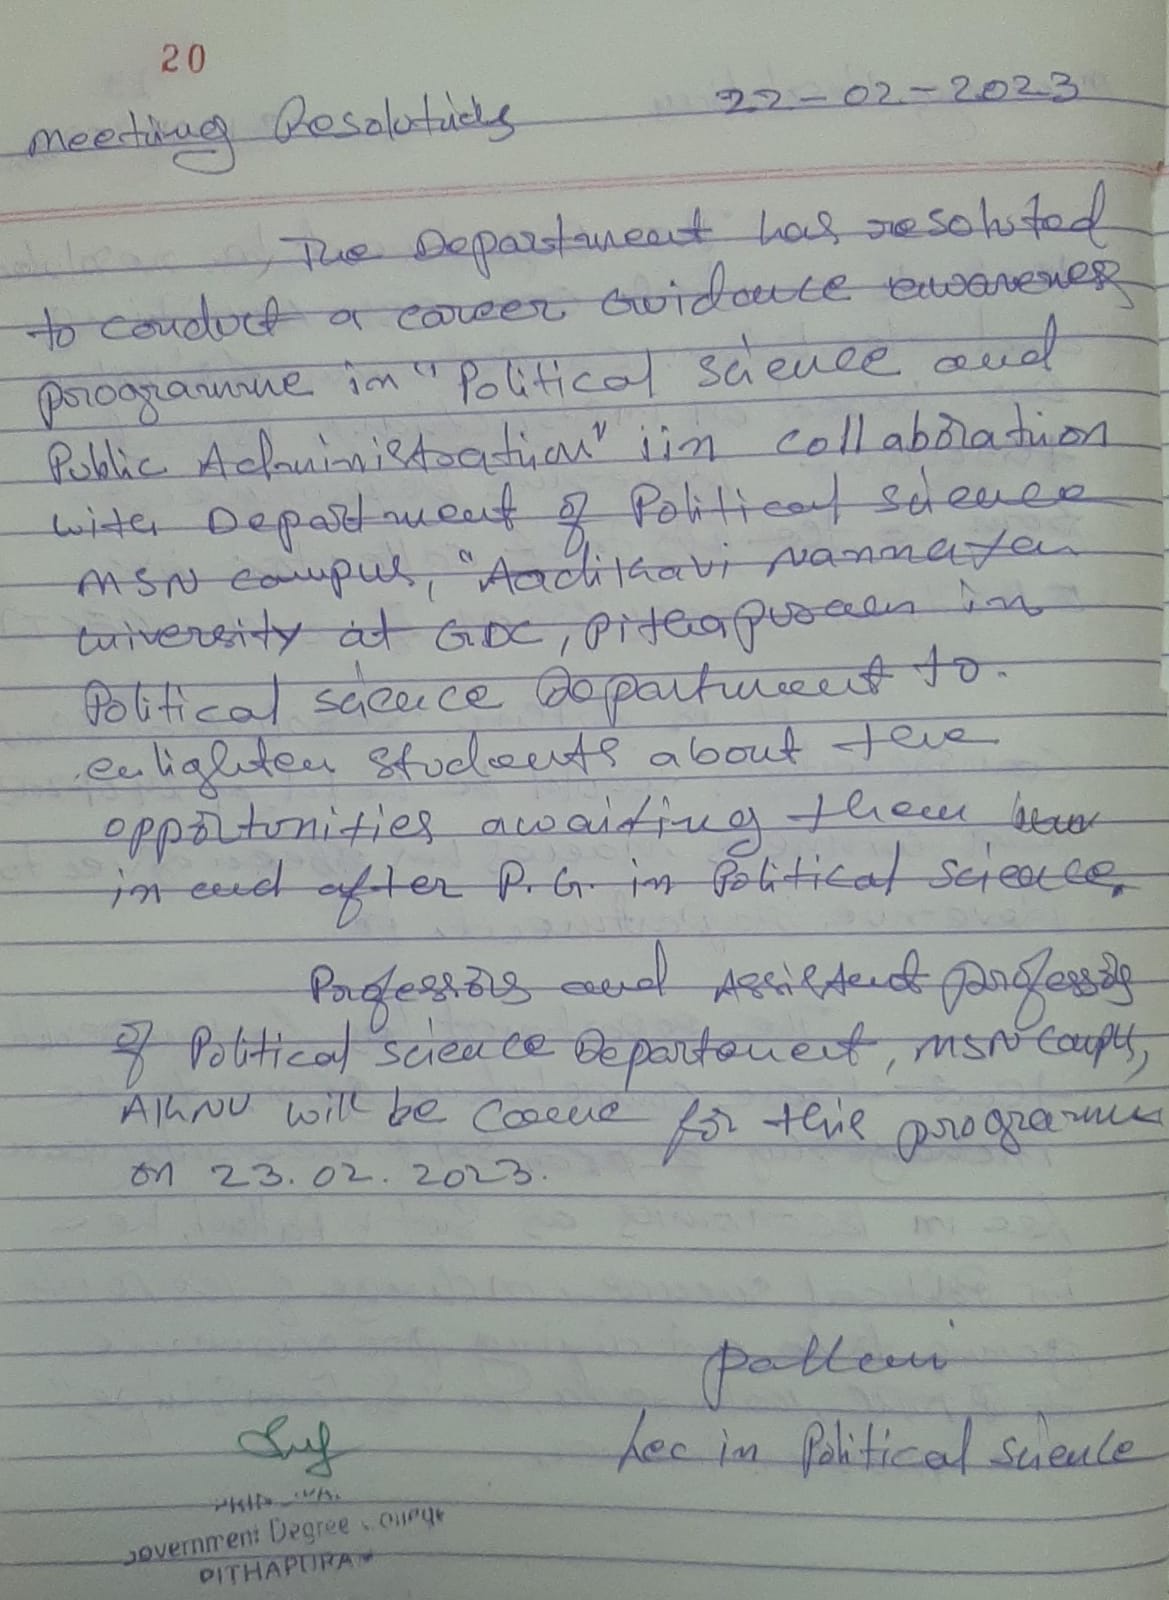 20
22-02-2023
Meeting Resolutions
The Department has resoluted
to conduct a career Guidance awareness
programme in "Political Science and
Public Administration" iin collaboration
with Department of Political Science
MSN campus, "Aadikavi Nannayya
University at GDC, Pithapuram in
Political Science Department to.
enlighten students about the
opportunities awaiting them
in and after P.G. in Political Science.
Professors and Assistant professors
of Political Science Department, MSN Campus,
AKNU will be come for this programme
on 23.02.2023.
Lec in Political Science
Government Degree College
PITHAPURAM